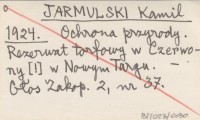 JARMULSKI Kamil
1924. Ochrona przyrody.
Rezerwat torfowy w Czerwo-
ny [!] w Nowym Targu.
Głos Zakop. 2, nr 37.